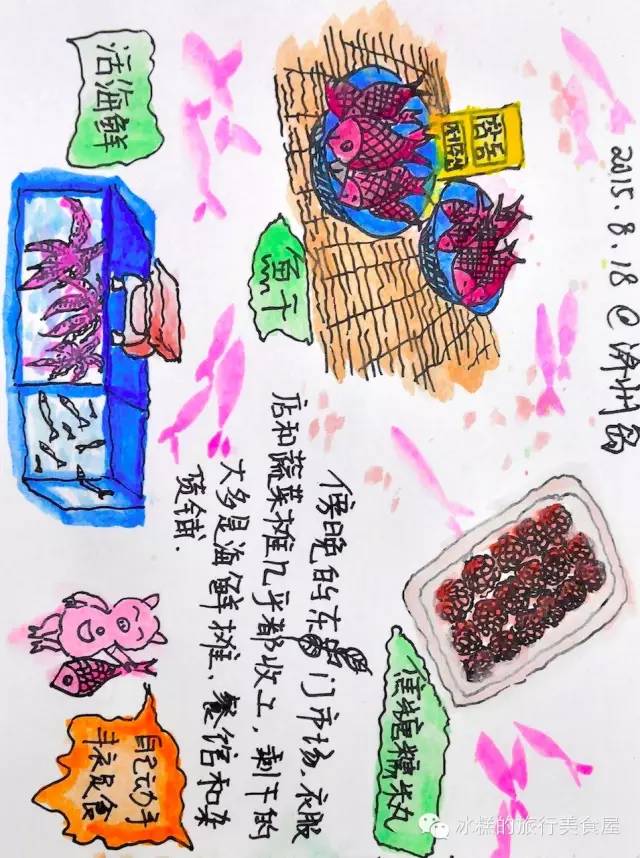 2015.8.18 @济州岛
活海鲜
鱼干
傍晚的东门市场、衣服
店和蔬菜摊几乎都收工、剩下的
大多是海鲜摊、餐馆和杂
货铺.
焦糖糯米丸
自己动手
丰衣足食
冰糕的旅行美食屋